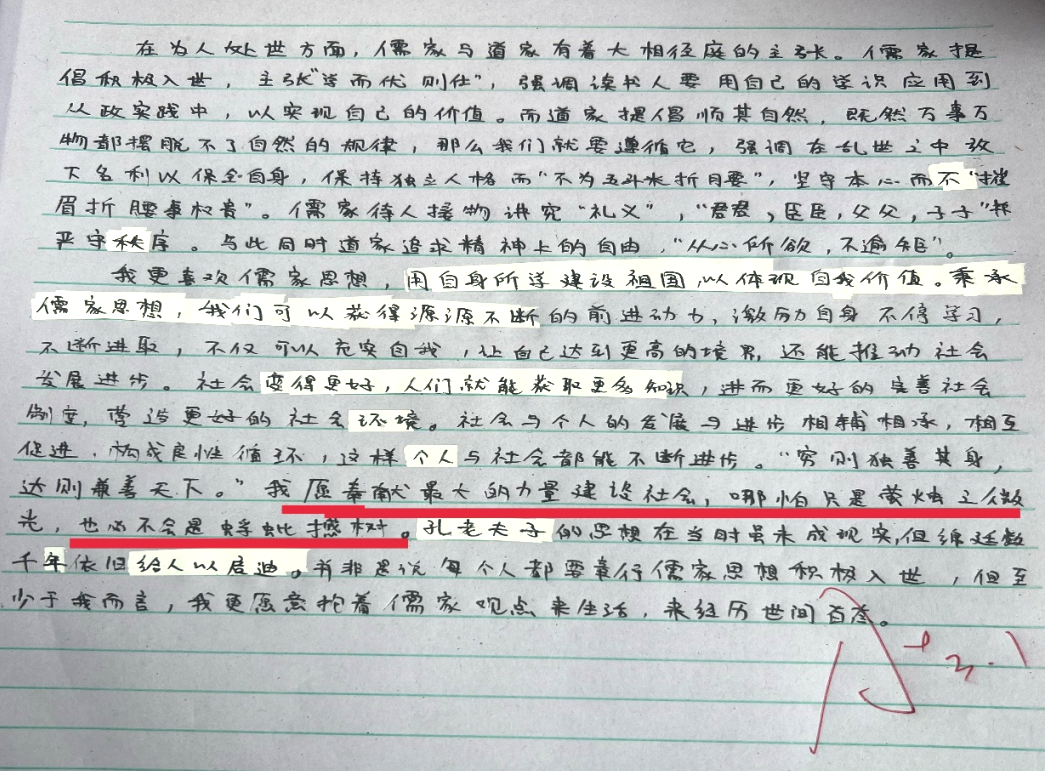 在为人处世方面，儒家与道家有着大相径庭的主张。儒家提
倡积极入世，主张“学而优则仕”，强调读书人要用自己的学识应用到
从政实践中，以实现自己的价值。而道家提倡顺其自然，既然万事万
物都摆脱不了自然的规律，那么我们就要遵循它，强调在乱世之中放
下名利以保全自身，保持独立人格而“不为五斗米折月要”，坚守本心而不“摧
眉折腰事权贵”。儒家待人接物讲究“礼义”，“君君，臣臣，父父，子子”
严守秩序。与此同时道家追求精神上的自由，“从心所欲，不逾矩”。
我更喜欢儒家思想，用自身所学建设祖国，以体现自我价值。秉承
儒家思想，我们可以获得源源不断的前进动力，激励自身不停学习，
不断进取，不仅可以充实自我，让自己达到更高的境界，还能推动社会
发展进步。社会变得更好，人们就能获取更多知识，进而更好的完善社会
制度，营造更好的社会环境。社会与个人的发展与进步相辅相承，相互
促进，构成良性循环，这样个人与社会都能不断进步。“穷则独善其身，
达则兼善天下。”我愿奉献最大的力量建设社会，哪怕只是萤烛之微
光，也必不会是蚍蜉撼树。孔老夫子的思想在当时虽未成现实，但绵延数
千年依旧给人以启迪。并非是说每个人都要奉行儒家思想积极入世，但至
少于我而言，我更愿意抱着儒家观点来生活，来经历世间百态。
A+ 3.1